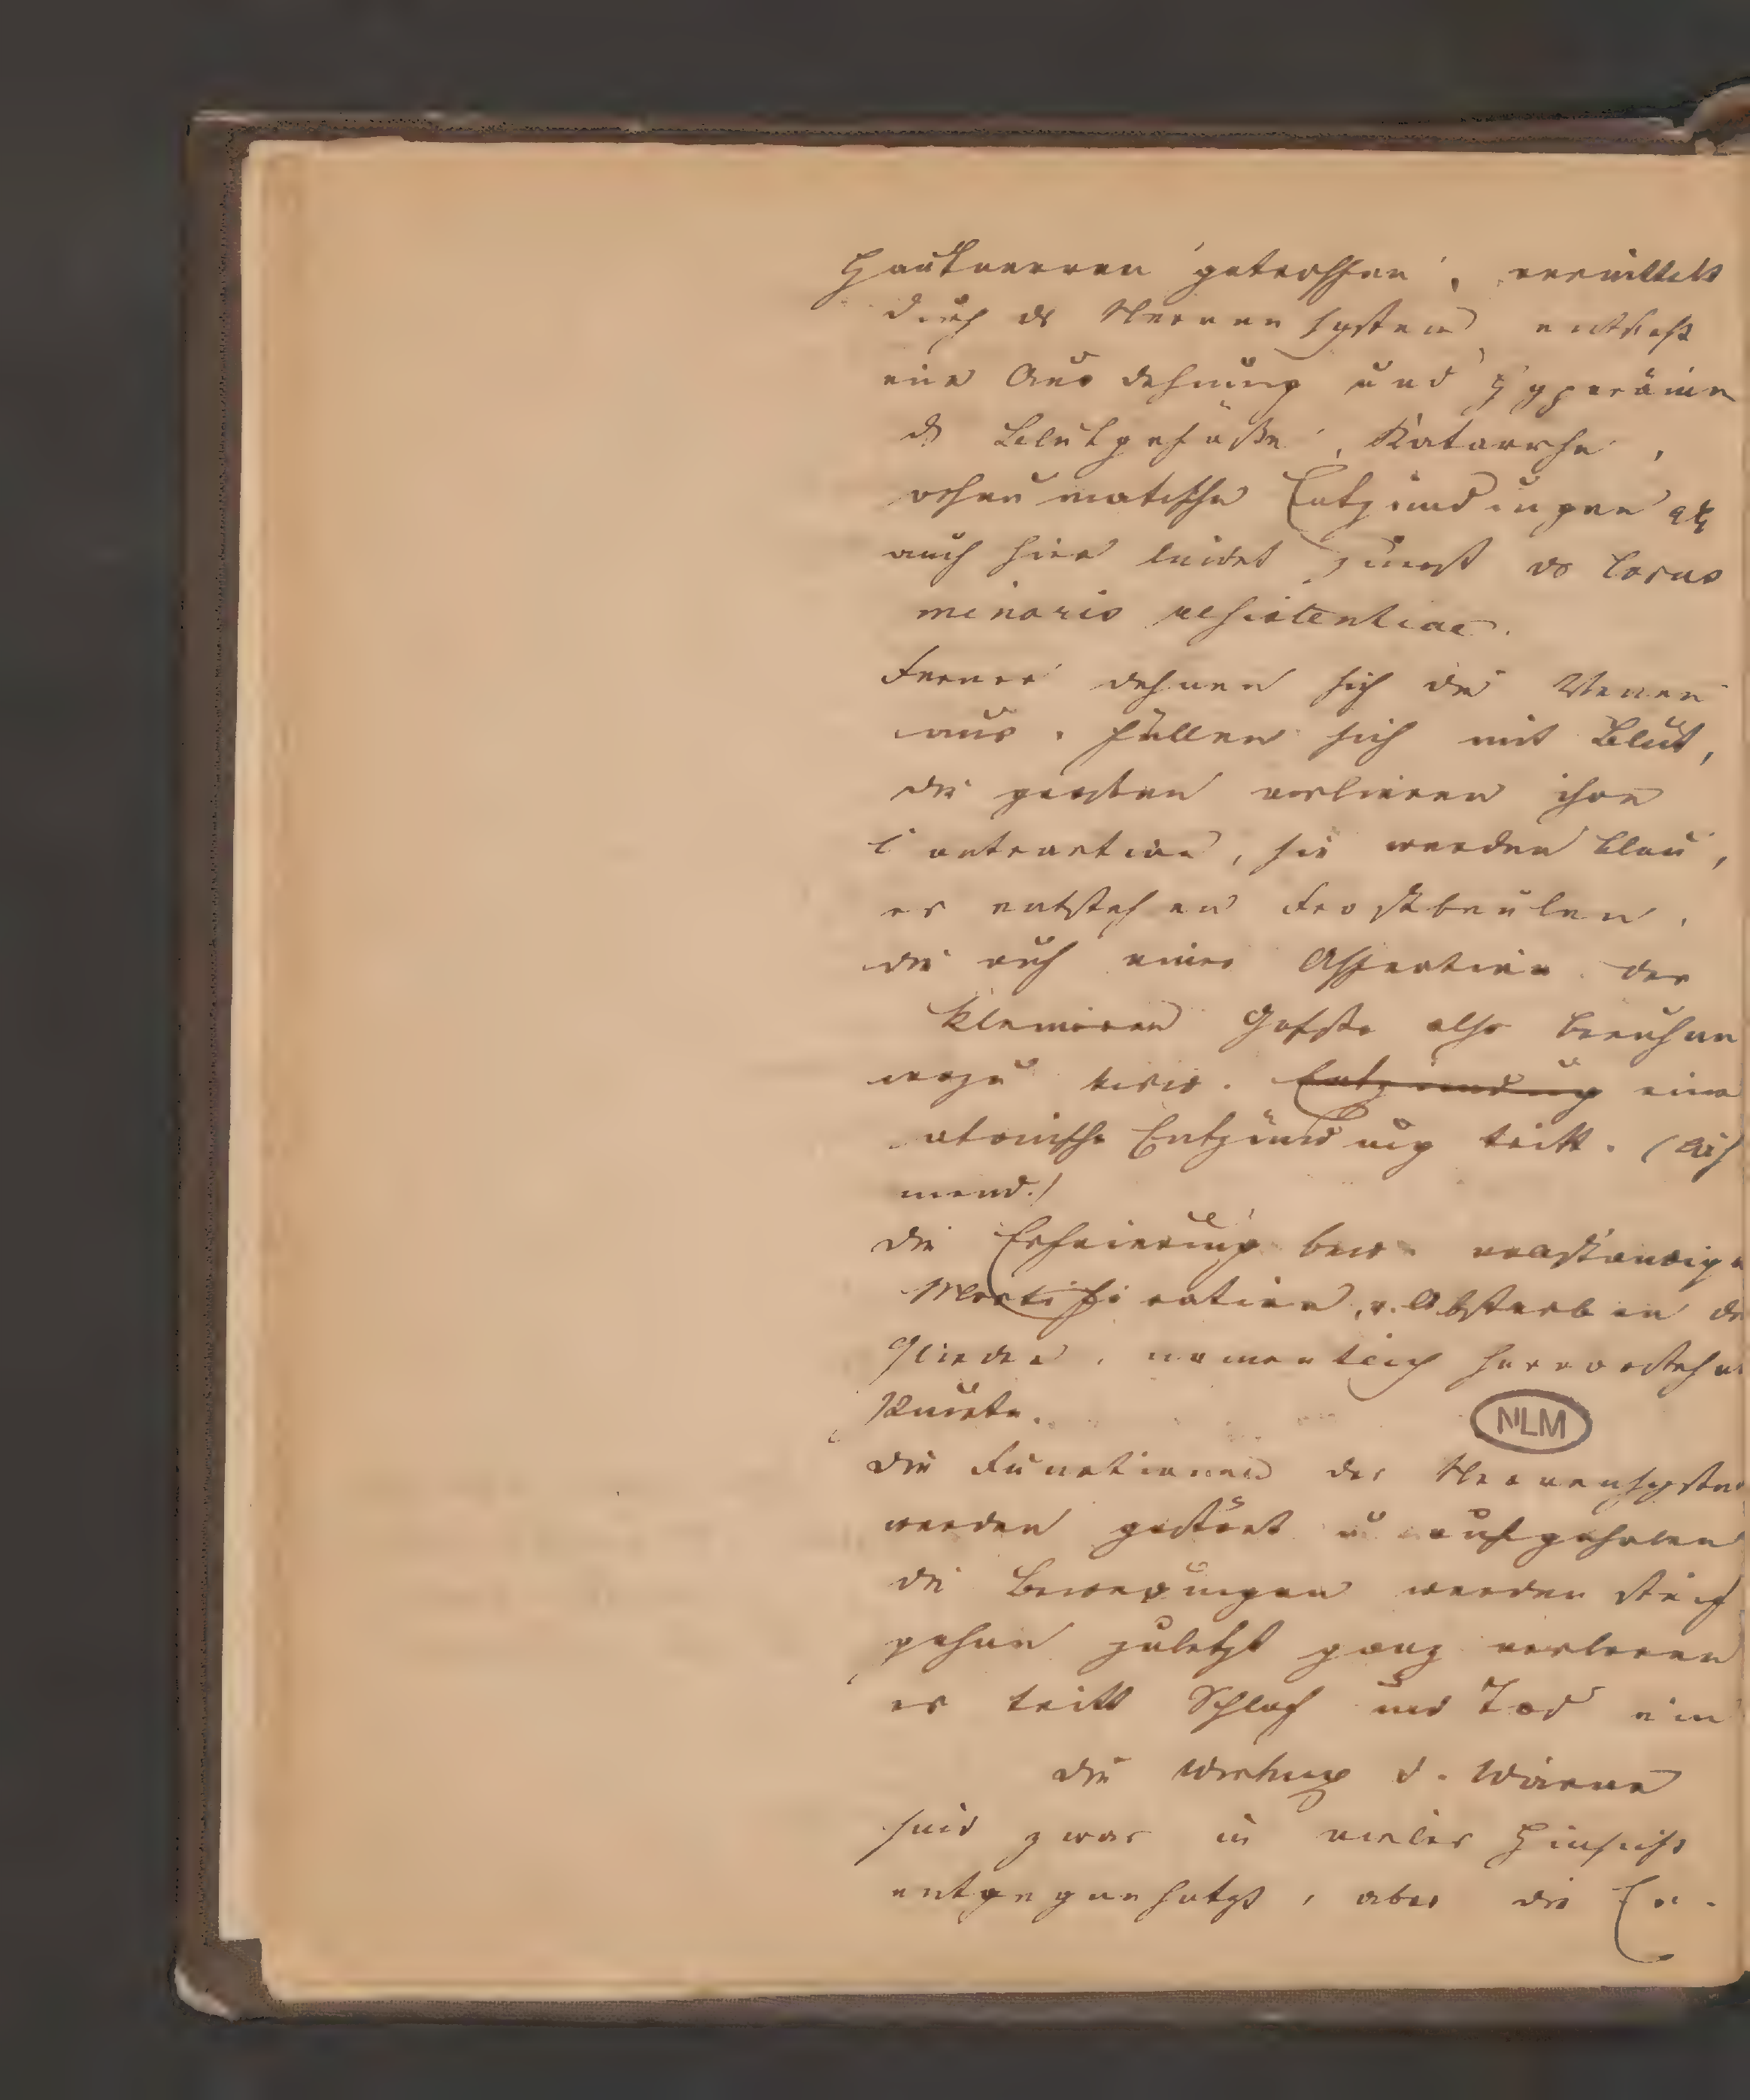 Hautnerven getroffen, vermittelst
durch ds Nervensystem, entsteht
eine Ausdehnung und Hyperämie
ds Blutgefäße, Katarrhe,
rheumatische Entzündungen etc
auch hier leidet zuerst ds locus
minoris resistentiae.
Ferner dehnen sich die Venen
aus, füllen sich mit Blut,
die verlieren ihre
Contraction, sie werden blau,
es entstehen Frostbeulen,
die auf einer Affection der
kleineren Gefäße also beruhen
wozu Entzündung eine
atonische Entzündung tritt.
die Erfrierung bew. vollständige
Mortification, v. Absterben de
Glieder, namentlich hervorstehen
Punkte.
NLM
die Functionen des Nervensystem
werden gestört u aufgehoben
die Bewegungen werden steif
gehen zuletzt ganz verloren
es tritt Schlaf und Tod ein
die Wirkung d. Wärme
sind zwar in vieler Hinsicht
entgegengesetzt, aber die Er-